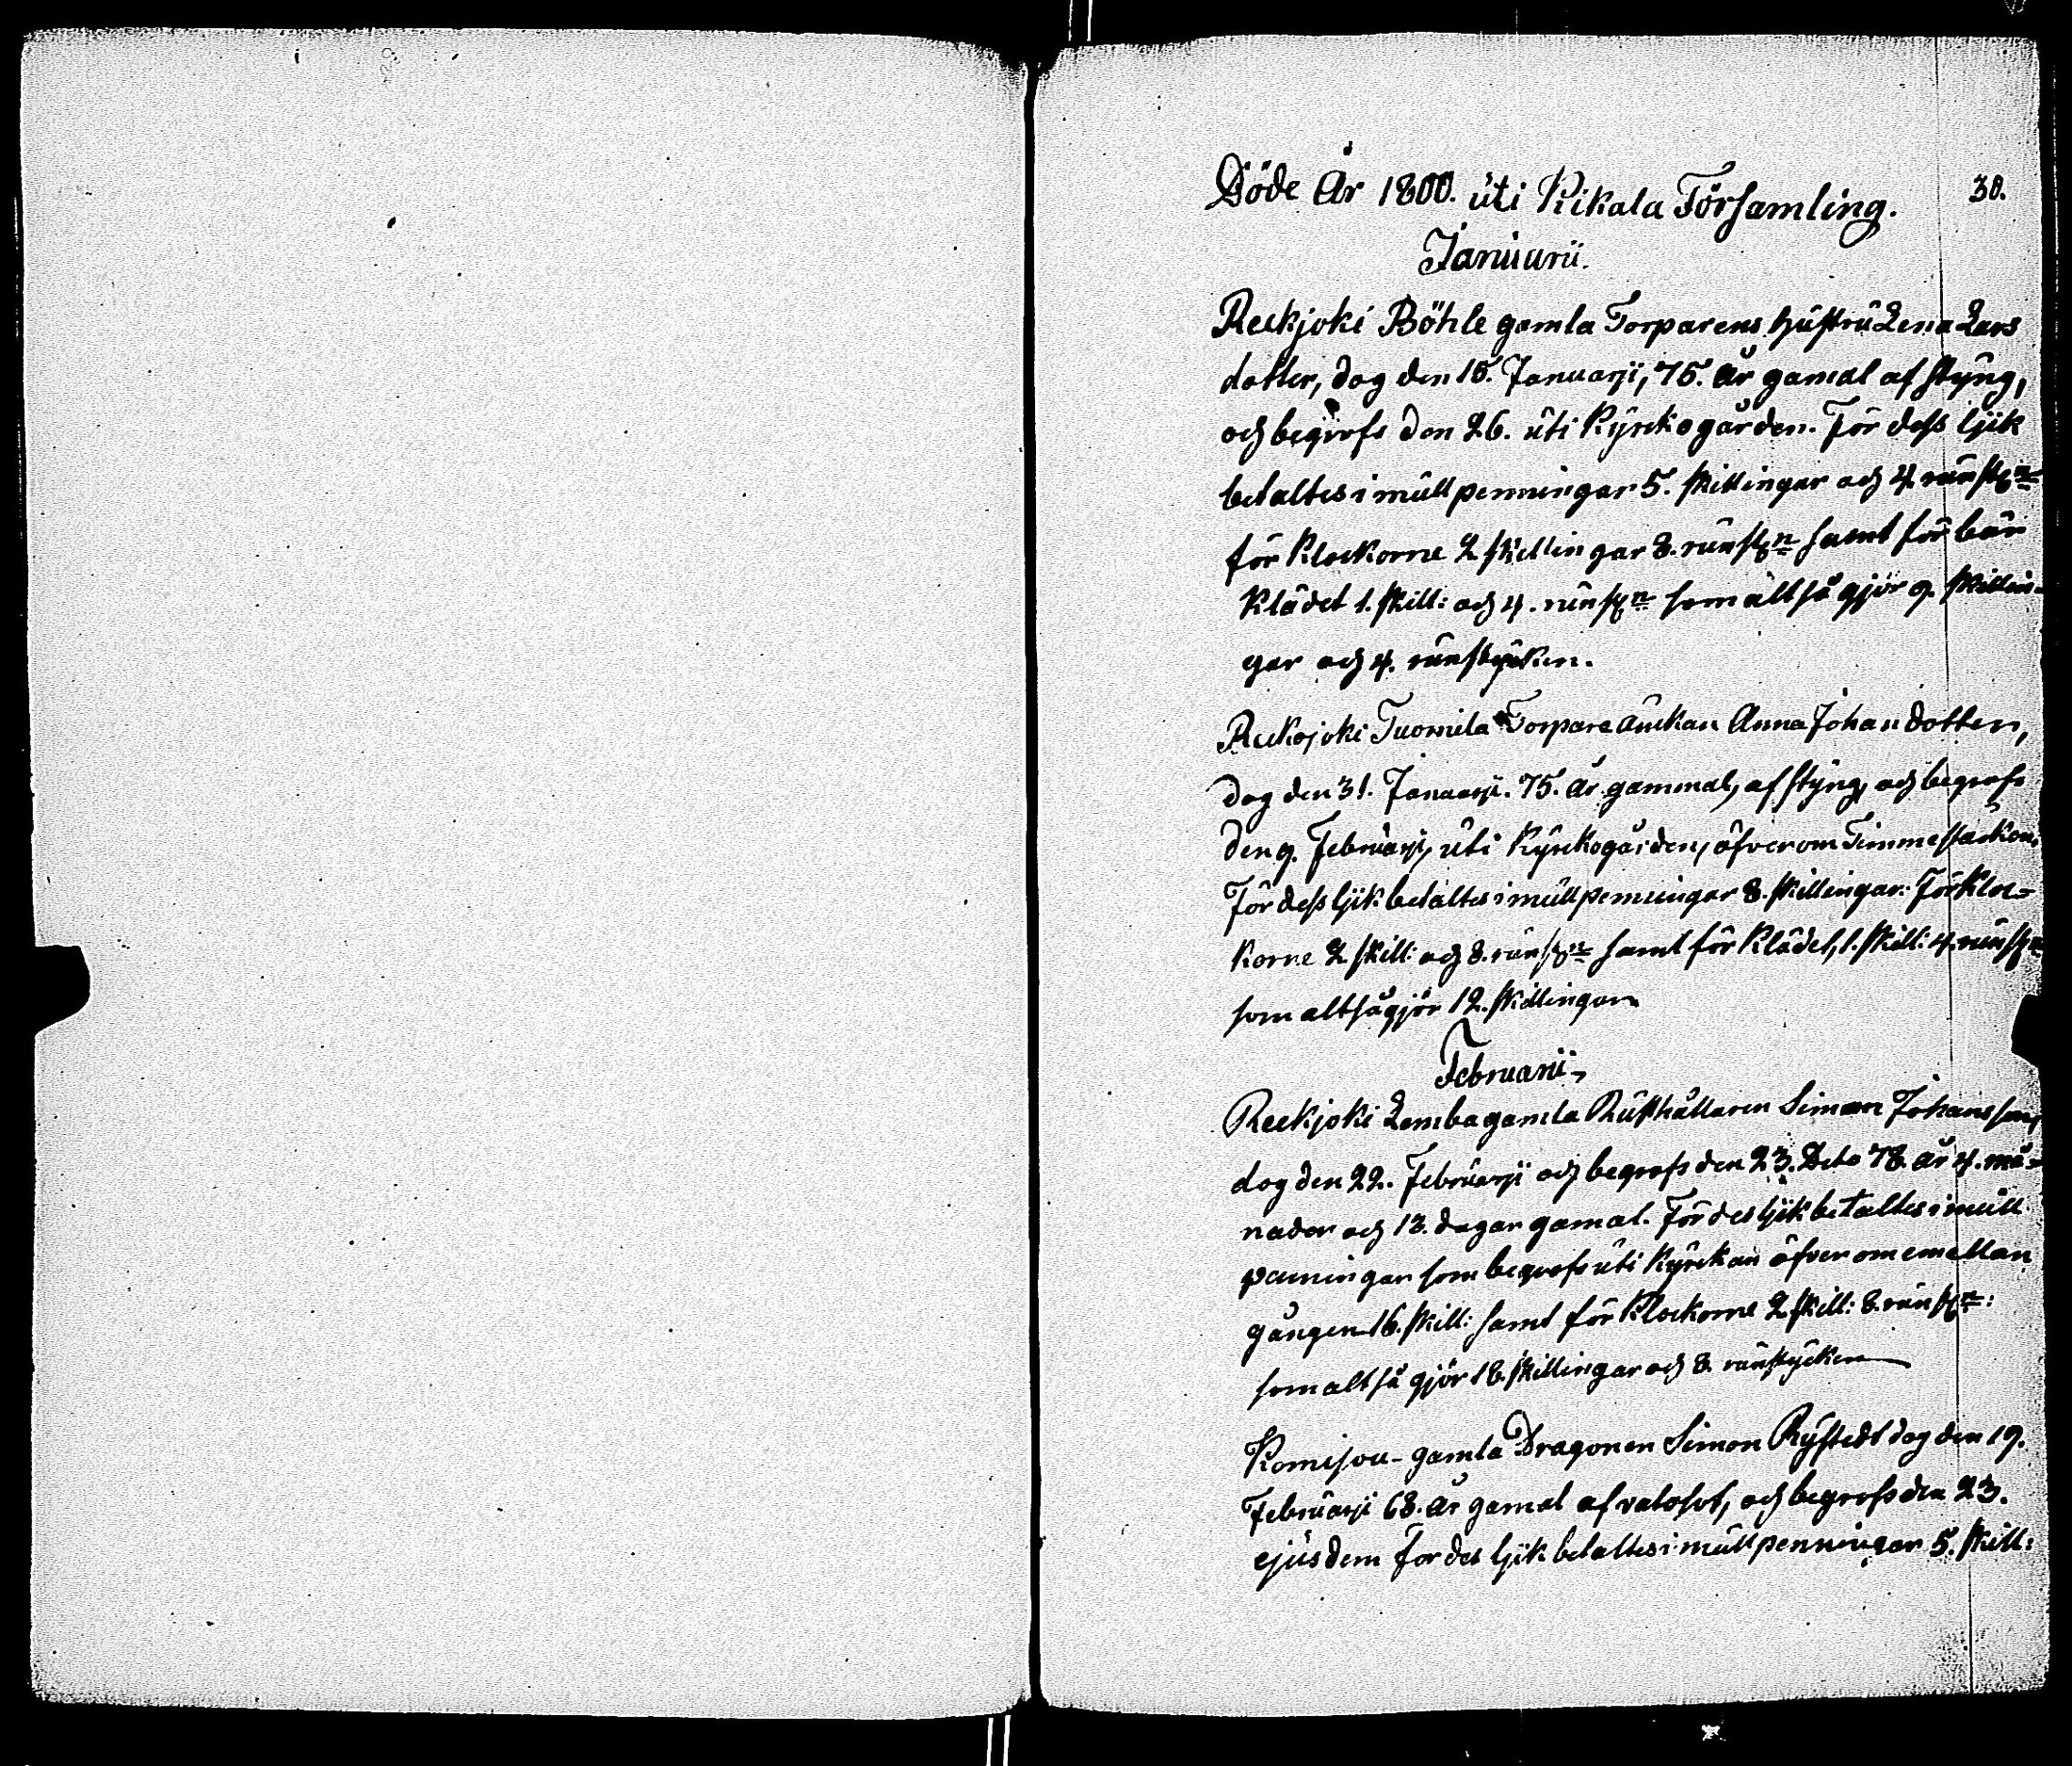 Döde År 1800. uti Kikala Församling.
30.
Januarii.
Reekjoki Böhle gamla Torparens hustru Lena Lars
dotter, dog den 15. Januarji, 75. år gamal af styng,
och begrofs den 26. uti Kyrckogården. För dess lijk
betaltes i mullpenningar 5. skillingar och 4 runstn
för Klockorne 2 skillingar 8. runstn samt för bår
Klädet 1. skill: och 4. runstn som altså gjör 9. skillin-
gar och 4. runstycken.
Reekojoki Tuomila Torpare änckan Anna Johan dotter,
dog den 31. Januarji. 75. år gammal, af styng, och begrofs
den 9. Februarji, uti Kyrckogården, öfver om Timmerstackon.
För dess lijk betaltes i mullpenningar 8. skillingar: för Kloc-
korne 2 skill: och 8. runstn samt för Klädet, 1. skill: 4. runstn
som altså gjör 12. skillingar
Februarii
Reekjoki Lemba gamla Rusthållaren Simon Johansson,
dog den 22. Februarji och begrofs den 23. Dito 78. år 4. må-
nader och 13. dagar gamal. För des lijk betaltes i mull
penningar som begrofs uti Kyrckan öfver om emellan
gången 16. skill: samt för Klockorne 2 skill: 8. runstn:
som altså gjör 18. skillingar och 8. runstycken
Komisou- gamla Dragonen Simon Rystedt dog den 19.
Februarji 68. år gamal af rotosot, och begrofs den 23.
ejusdem För des lijk betaltes i mullpenningar 5. skill: